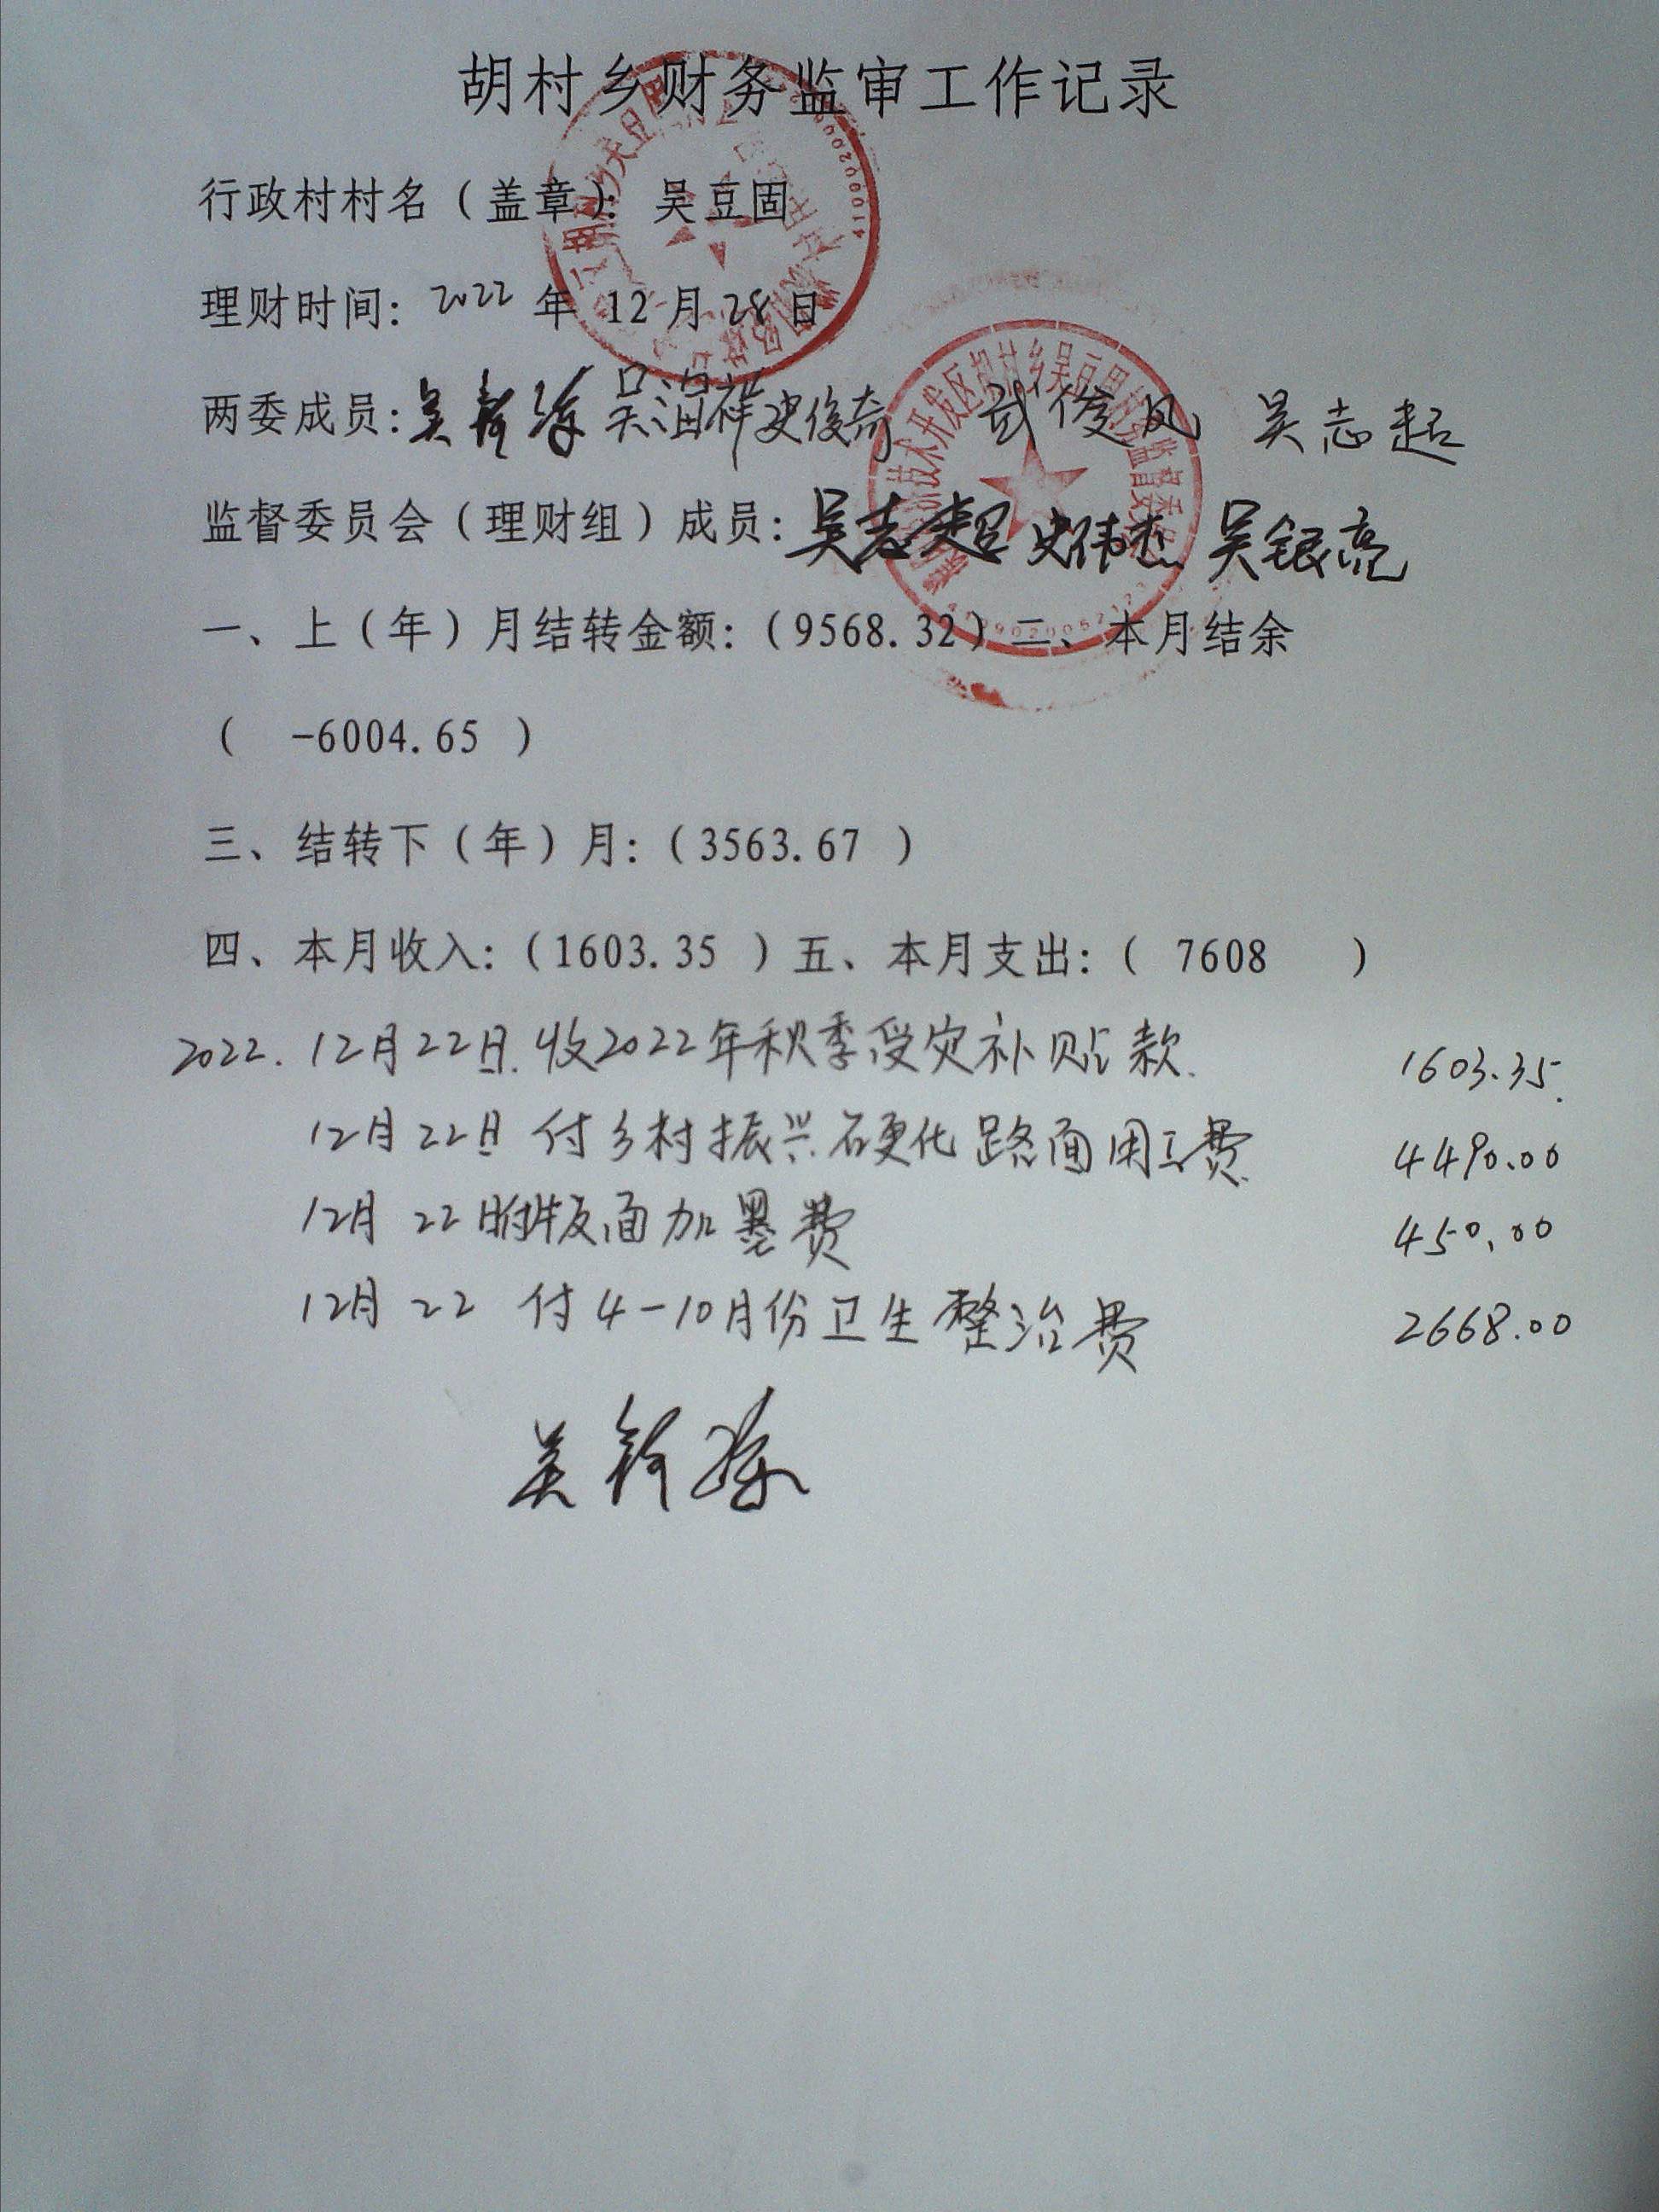 胡村乡财务监审工作记录
行政村村名（盖章）： 吴豆固
理财时间：2022 年 12 月 28 日
两委成员：吴 吴海祥 史俊奇 武俊风 吴志超
监督委员会（理财组）成员：吴志超 史伟杰 吴银亮
一、上（年）月结转金额：（9568.32）二、本月结余
（ -6004.65 ）
三、结转下（年）月：（3563.67 ）
四、本月收入：（1603.35 ）五、本月支出：（ 7608 ）
2022. 12月22日. 收2022年秋季受灾补贴款. 1603.35.
12月22日 付乡村振兴硬化路面用工费 4490.00
12月 22日付版面加墨费 450.00
12月 22 付 4-10月份卫生整治费 2668.00